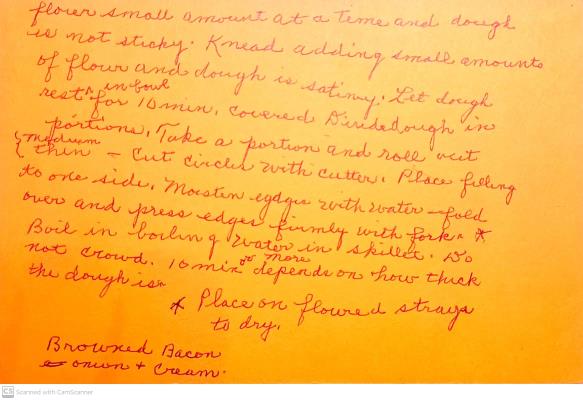 flour small amount at a time and dough
is not sticky. Knead adding small amounts
of flour and dough is satiny. Let dough
rest ^ in bowl for 10 min. covered Divide dough in
portions. Take a portion and roll out
{ medium
{ thin - Cut circles with cutter. Place filling
to one side. Moisten egdges with water - fold
over and press edges firmly with fork. *
Boil in boiling water in skillet. Do
not crowd. 10 min or more depends on how thick
the dough is.
* Place on floured strays
to dry.
Browned Bacon
onion + Cream.
CS Scanned with CamScanner